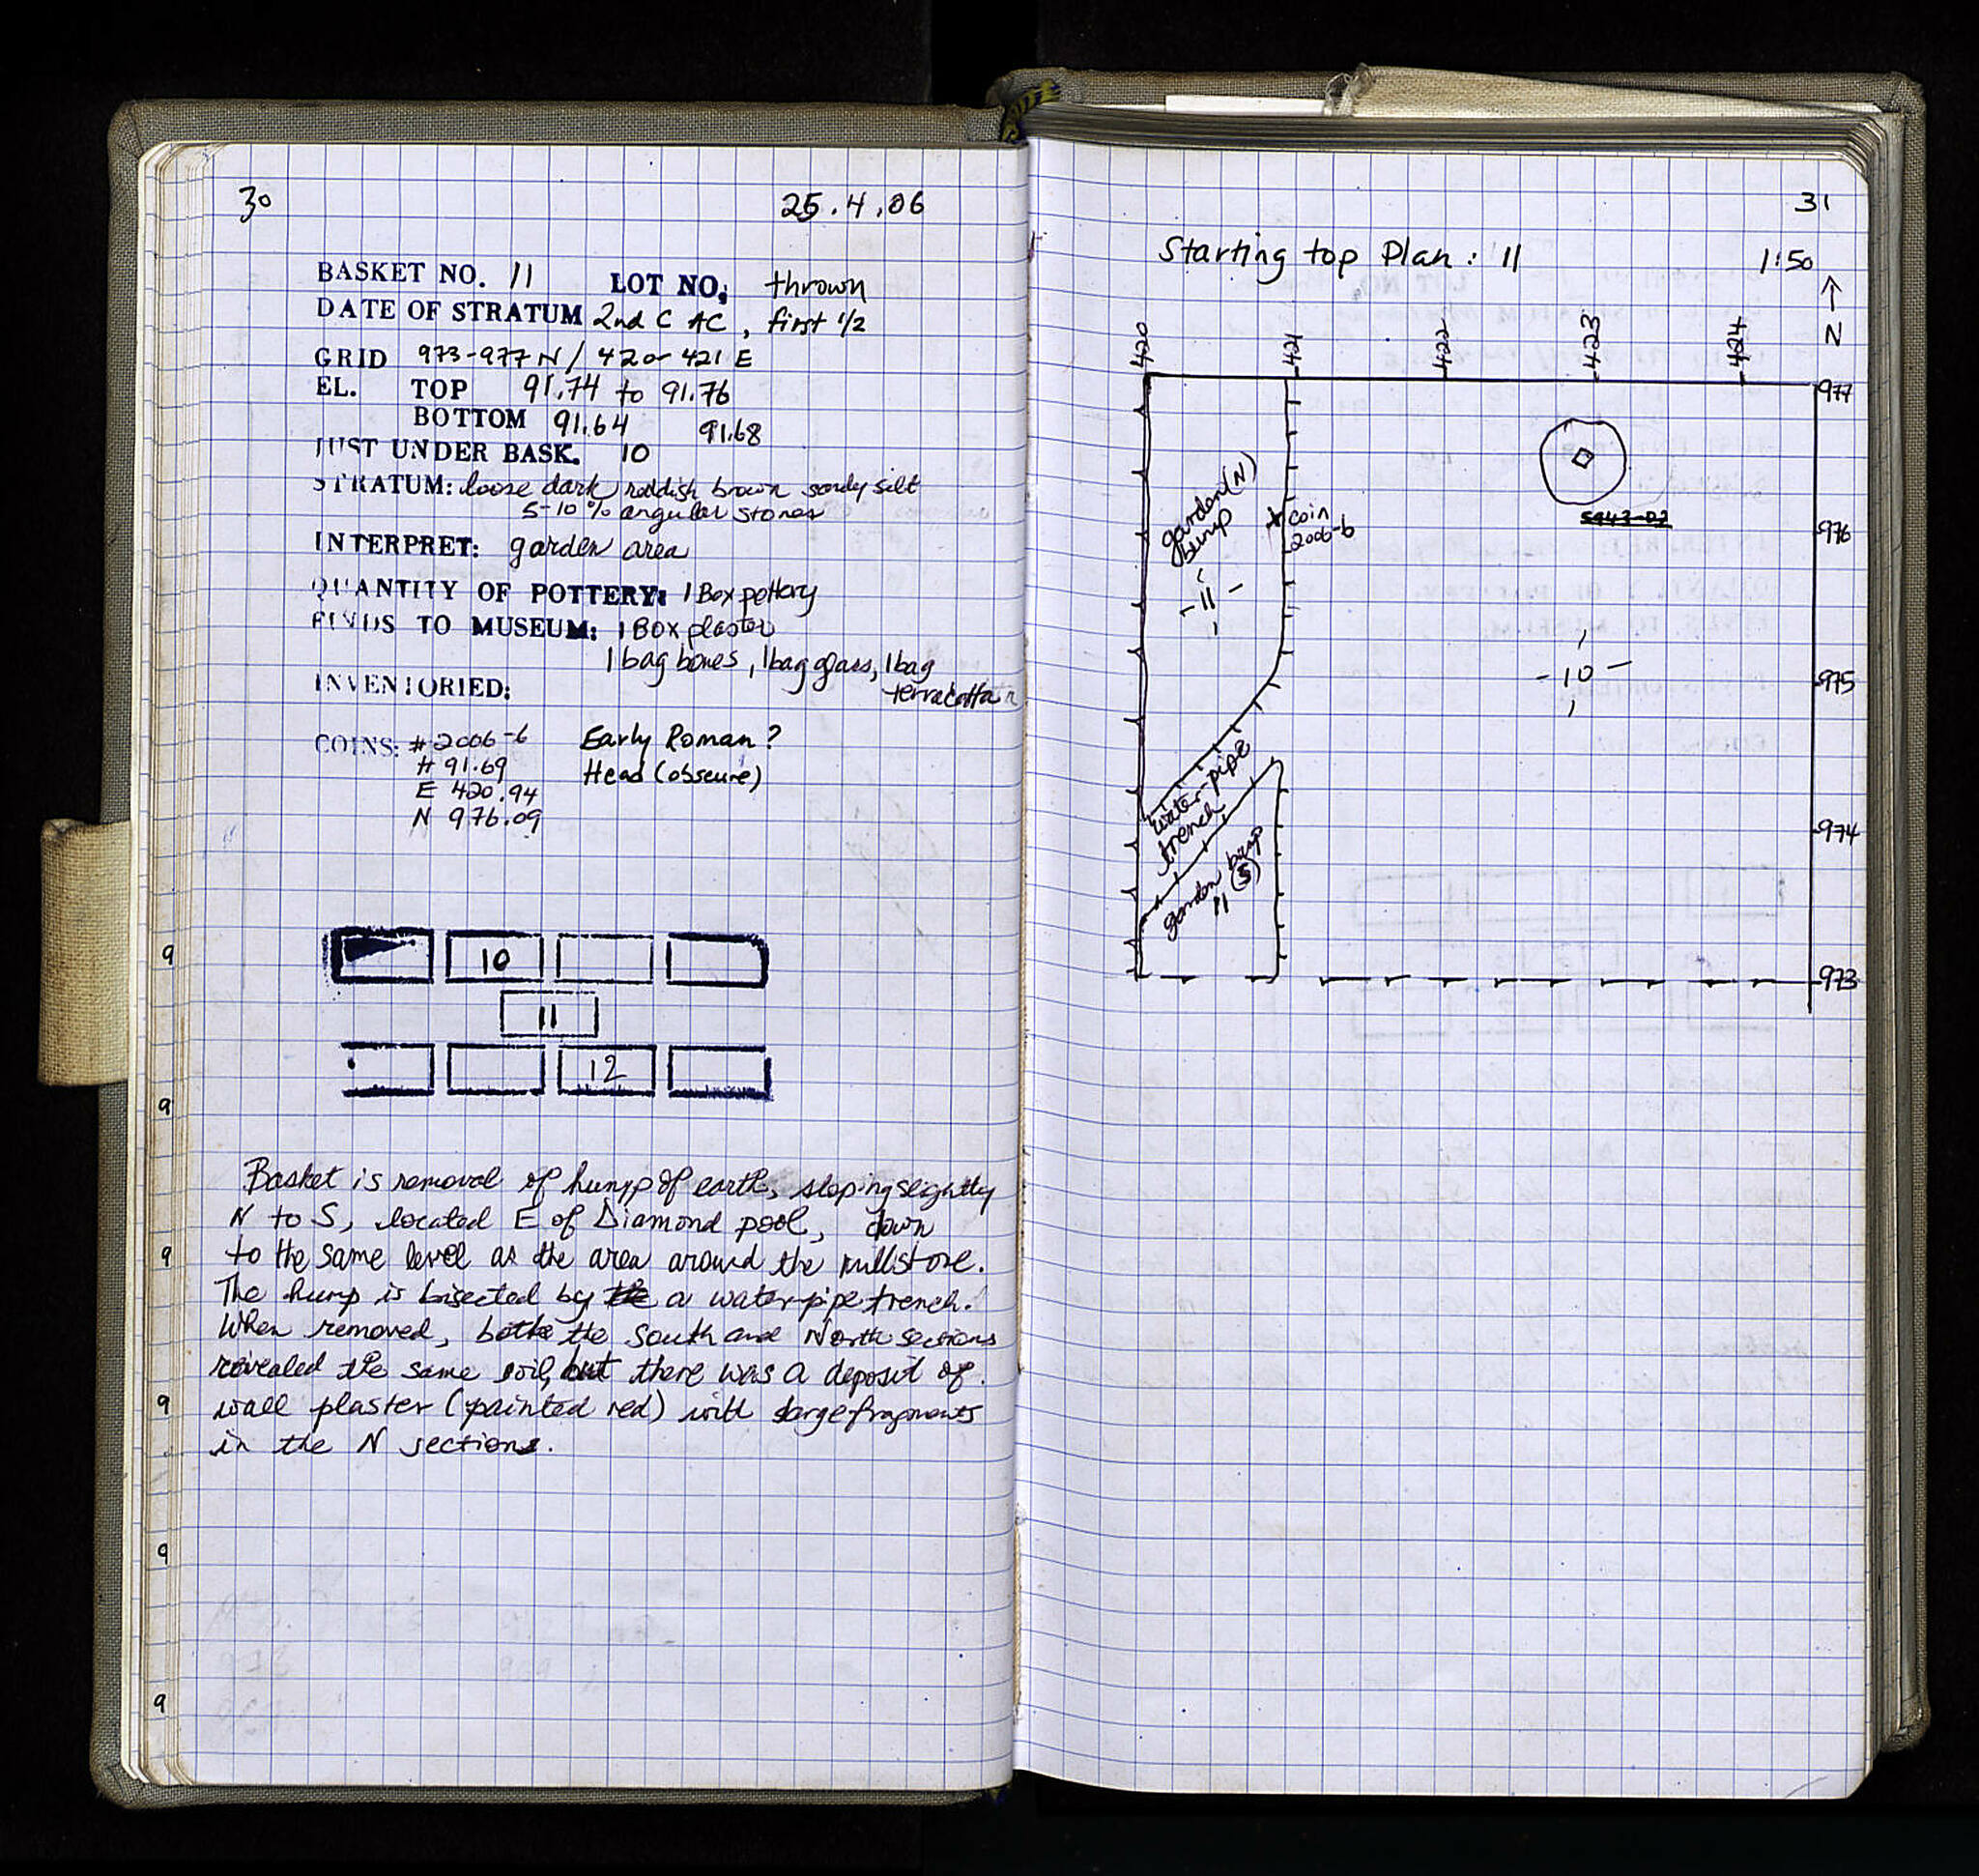 30
25.4.06
BASKET NO. 11 LOT NO: thrown
DATE OF STRATUM 2nd C AC, first 1/2
GRID 973-977 N / 420-421 E
EL. TOP 91.74 to 91.76
BOTTOM 91.64 91.68
JUST UNDER BASK. 10
STRATUM: loose dark reddish brown sandy silt
5-10% angular stones
INTERPRET: garden area
QUANTITY OF POTTERY: 1 Box pottery
FINDS TO MUSEUM: 1 Box plaster
1 bag bones, 1 bag glass, 1 bag
terracotta
INVENTORIED:
COINS: #2006-6 Early Roman?
H 91.69 Head (obscure)
E 420.94
N 976.09
10
11
12
Basket is removal of hump of earth, sloping slightly
N to S, located E of Diamond pool, down
to the same level as the area around the millstone.
The hump is bisected by the a water-pipe trench.
When removed, both the South and North sections
revealed the same soil, but there was a deposit of
wall plaster (painted red) with large fragments
in the N sections.
9
9
9
9
9
9
31
Starting top Plan: 11
1:50
N
420
421
422
423
424
977
976
975
974
973
garden (N)
hump
-11-
coin
2006-6
5943-02
-10-
water-pipe
trench
garden hump
(S)
11